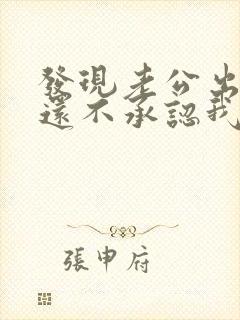 發現老公出
還不承認我
張申府